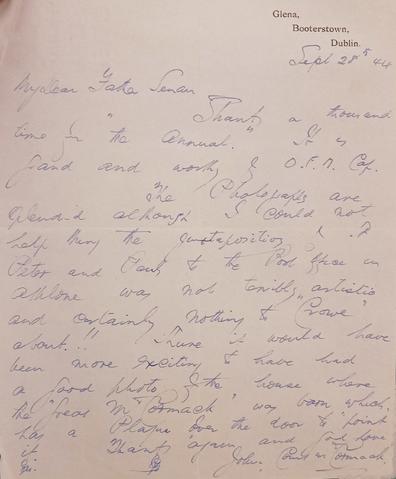 Glena,
Booterstown,
Dublin.
Sept 28th 44
My dear Father Senan
Thanks a thousand
times for the "Annual." It is
grand and worthy of O.F.M. Cap.
The Photographs are
splendid although I could not
help thing the juxtaposition of
Peter and Paul to the Post Office in
Athlone was not terribly artistic
and certainly nothing to "Crowe"
about.!! I it would have
been more exciting to have had
a good photo of the house where
the "Great McCormack" was born which
has a Plaque over the door to "point
it Thanks again and God love
you. John, Count McCormack.